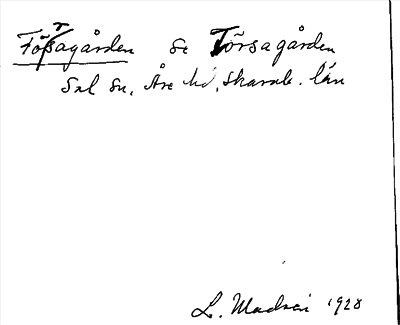 Försagården se Törsagården
Sal sn, Åse hd, Skarab. län
L. Madsén 1928